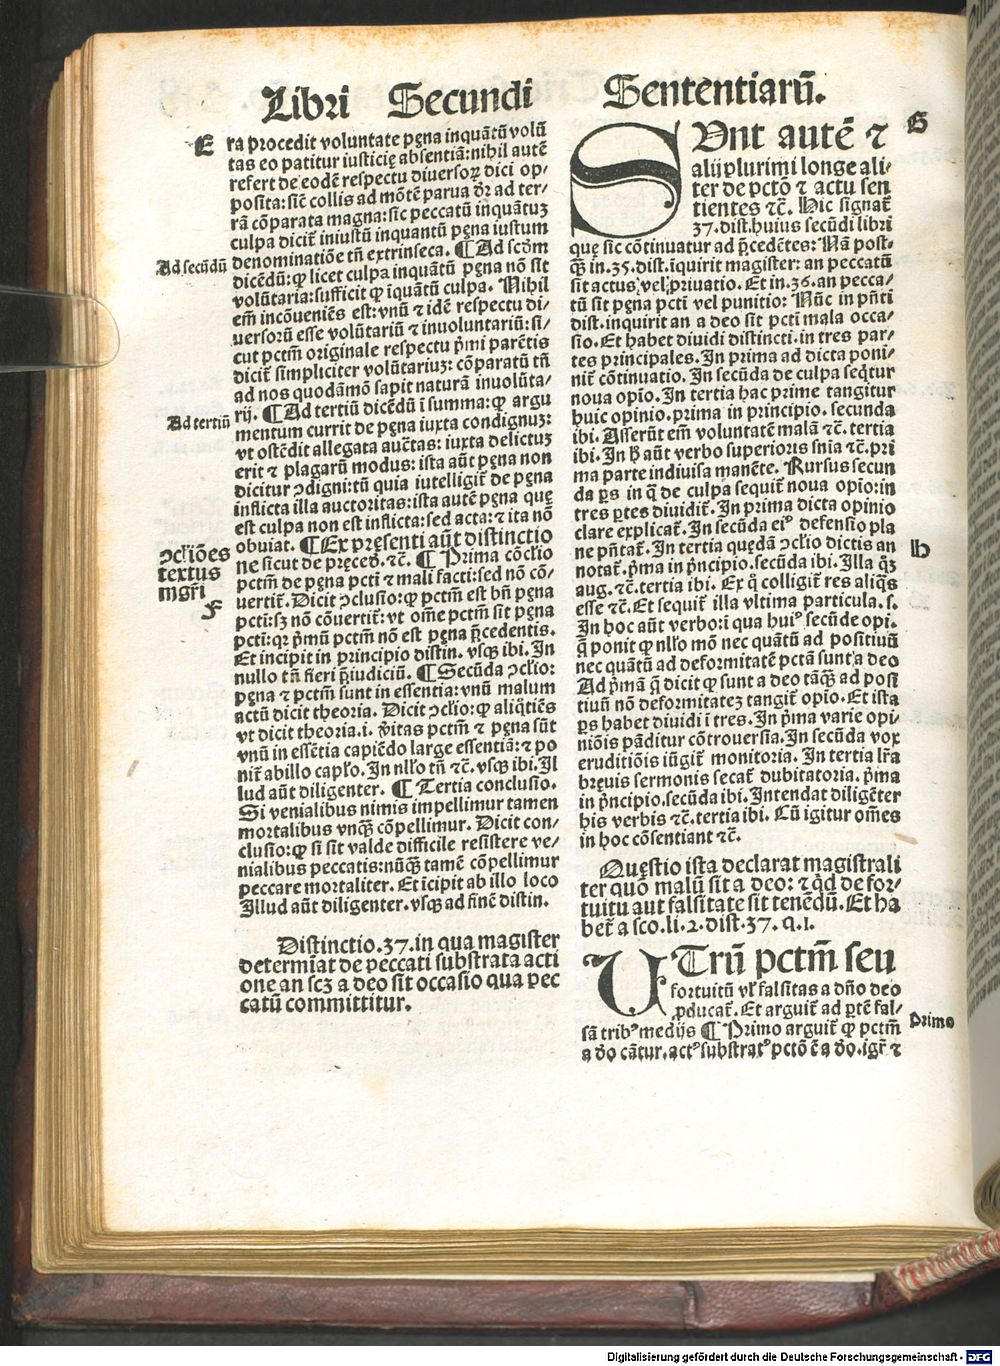 Libri Secundi Sententiarū.
E
ra procedit voluntate pęna inquātū volū
tas eo patitur iusticię absentiā: nihil autē
refert de eodē respectu diuersoꝝ dici op-
posita: sic̄ collis ad mōtē parua dr̄ ad ter-
rā cōparata magna: sic peccatū inquātuꝫ
culpa dicit̄ iniustū inquantū pęna iustum
denominatiōe tn̄ extrinseca. ¶ Ad scd̄m
Ad secūdū
dicēdū: ꝙ licet culpa inquātū pęna nō sit
volūtaria: sufficit ꝙ īquātū culpa. Nihil
em̄ incōueniēs est: vnū ⁊ idē respectu di-
uersorū esse volūtariū ⁊ inuoluntariū: si-
cut pctm̄ originale respectu pⁱmi parētis
dicit̄ simpliciter volūtariuꝫ: cōparatū tn̄
ad nos quodāmō sapit naturā inuolūta-
rij. ¶ Ad tertiū dicēdū ī summa: ꝙ argu
Ad tertiū
mentum currit de pęna iuxta condignuꝫ:
vt ostēdit allegata auctas: iuxta delictuꝫ
erit ⁊ plagarū modus: ista aūt pęna non
dicitur ↄdigni: tū quia iutelligit̄ de pęna
inflicta illa auctoritas: ista autē pęna quę
est culpa non est inflicta: sed acta: ⁊ ita nō
obuiat. ¶ Ex pręsenti aūt distinctio
ne sicut de pręced. ⁊c̄. ¶ Prima cōclio
ↄcliōes
textus
mgr̄i
F
pctm̄ de pęna pcti ⁊ mali facti: sed nō cō-
uertit̄. Dicit ↄclusio: ꝙ pctm̄ est bn̄ pęna
pcti: sꝫ nō cōuertit̄: vt om̄e pctm̄ sit pęna
pcti: qꝛ pⁱmū pctm̄ nō est pęna p̄cedentis.
Et incipit in principio distin. vsqꝫ ibi. In
nullo tn̄ fieri p̄iudiciū. ¶ Secūda ↄclio:
pęna ⁊ pctm̄ sunt in essentia: vnū malum
actū dicit theoria. Dicit ↄclio: ꝙ aliq̄tiēs
vt dicit theoria. i. v̄itas pctm̄ ⁊ pęna sūt
vnū in essētia capiēdo large essentiā: ⁊ po
nit̄ ab illo capło. In nłło tn̄ ⁊c̄. vsqꝫ ibi. Il
lud aūt diligenter. ¶ Tertia conclusio.
Si venialibus nimis impellimur tamen
mortalibus vnqꝙ̄ cōpellimur. Dicit con-
clusio: ꝙ si sit valde difficile resistere ve-
nialibus peccatis: nūꝙ̄ tamē cōpellimur
peccare mortaliter. Et īcipit ab illo loco
Illud aūt diligenter. vsqꝫ ad finē distin.
Distinctio. 37. in qua magister
determīat de peccati substrata acti
one an scꝫ a deo sit occasio qua pec
catū committitur.
SUnt autē ⁊
G
alij plurimi longe ali-
ter de pctō ⁊ actu sen
tientes ⁊c̄. Hic signat̄
37. dist. huius secūdi libri
quę sic cōtinuatur ad p̄cedētes: Nā post-
ꝙ̄ in. 35. dist. īquirit magister: an peccatū
sit actus, vel priuatio. Et in. 36. an pecca-
tū sit pęna pcti vel punitio: Nūc in pn̄ti
dist. inquirit an a deo sit pcti mala occa-
sio. Et habet diuidi distincti. in tres par-
tes principales. In prima ad dicta poni-
nit̄ cōtinuatio. In secūda de culpa seq̄tur
noua opio. In tertia hac prime tangitur
huic opinio. prima in principio. secunda
ibi. Asserūt em̄ voluntatē malā ⁊c̄. tertia
ibi. In h̄ aūt verbo superioris sn̄ia ⁊c̄. pri
ma parte indiuisa manēte. Rursus secun
da ꝑs in q̄ de culpa sequit̄ noua opio: in
tres ꝑtes diuidit̄. In prima dicta opinio
clare explicat̄. In secūda eiꝰ defensio pla
ne pn̄tat̄. In tertia quędā ↄclio dictis an
h
notat̄. pⁱma in pⁱncipio. secūda ibi. Illa qꝫ
aug. ⁊c̄. tertia ibi. Ex q̄ colligit̄ res aliqs
esse ⁊c̄. Et sequit̄ illa vltima particula. s.
In hoc aūt verbo: i qua huiꝰ secūde opi.
q̄ ponit ꝙ nłło mō nec quātū ad positiuū
nec quātū ad deformitatē pctā sunt a deo
Ad pⁱmā q̄ dicit ꝙ sunt a deo tāꝙ̄ ad posi
tiuū nō deformitateꝫ tangit̄ opio. Et ista
ꝑs habet diuidi ī tres. In pⁱma varie opi
niōis pāditur cōtrouersia. In secūda vox
eruditiōis iūgit̄ monitoria. In tertia lr̄a
breuis sermonis secat̄ dubitatoria. pⁱma
in pⁱncipio. secūda ibi. Intendat diligēter
his verbis ⁊c̄. tertia ibi. Cū igitur om̄es
in hoc cōsentiant ⁊c̄.
Quęstio ista declarat magistrali
ter quō malū sit a deo: ⁊ qͥd de for-
tuitu aut falsitate sit tenēdū. Et ha
bet̄ a sco. li. 2. dist. 37. q. 1.
UTrū pctm̄ seu
fortuitū vł falsitas a dn̄o deo
ꝓducat̄. Et arguit̄ ad ꝑtē fal-
sā tribꝰ medijs ¶ Primo arguit̄ ꝙ pctm̄
Primo
a do cātur. actꝰ substratꝰ pctō ē a do. igr̄ ⁊
Digitalisierung gefördert durch die Deutsche Forschungsgemeinschaft - DFG